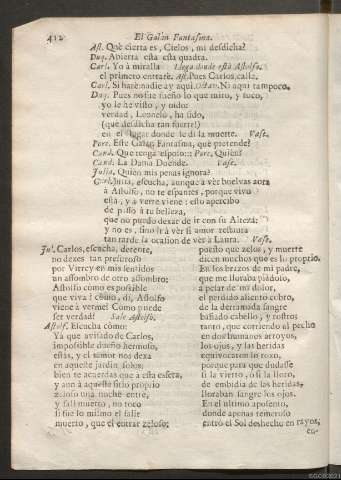 412
El Galàn Fantasma.
Ast. Què cierta es, Cielos, mi desdicha?
Duq. Abierta està esta quadra.
Carl. Yo à miralla Llega donde està Astolfo.
el primero entrarè. Ast. Pues Carlos, calla.
Carl. Si harè: nadie ay aqui. Octav. Ni aqui tampoco.
Duq. Pues no fue sueño lo que miro, y toco,
yo le he visto, y oìdo:
verdad, Leonelo, ha sido,
(què desdicha tan fuerte!)
en el lugar donde le dì la muerte. Vase.
Porc. Este Galàn Fantasma, què pretende?
Cand. Que tenga esposo: Porc. Quièn?
Cand. La Dama Duende. Vase.
Julia. Quièn mis penas ignora?
Carl. Julia, escucha, aunque à vèr buelvas aora
à Astolfo, no te espantes, porque vivo
està, y à verte viene: esto apercibo
de passo à tu belleza,
que no puedo dexar de ir con su Alteza;
y no es, sino ir à vèr si amor restaura
tan tarde la ocasion de vèr à Laura. Vase.
Jul. Carlos, escucha, detente,
no dexes tan presuroso
por Virrey en mis sentidos
un assombro de otro assombro:
Astolfo còmo es possible
que viva? còmo, dì, Astolfo
viene à verme? Còmo puede
ser verdad? Sale Astolfo.
Astolf. Escucha còmo:
Yà que avisado de Carlos,
impossible dueño hermoso,
estàs, y el amor nos dexa
en aqueste jardin solos;
bien te acuerdas que à esta esfera,
y aun à aqueste sitio proprio
zeloso una noche entrè,
y salì muerto, no toco
si fue lo mismo el salir
muerto, que el entrar zeloso;
puesto que zelos, y muerte
dicen muchos que es lo proprio.
En los brazos de mi padre,
que me lloraba piadoso,
à pesar de mi dolor,
el perdido aliento cobro,
de la derramada sangre
bañado cabello, y rostro;
tanto, que corriendo al pecho
en dos humanos arroyos,
los ojos, y las heridas
equivocaron lo roxo,
porque para que dudasse
si la vierto, ò si la lloro,
de embidia de las heridas,
lloraban sangre los ojos.
En el ultimo aposento,
donde apenas temeroso
entrò el Sol deshecho en rayos,
en-